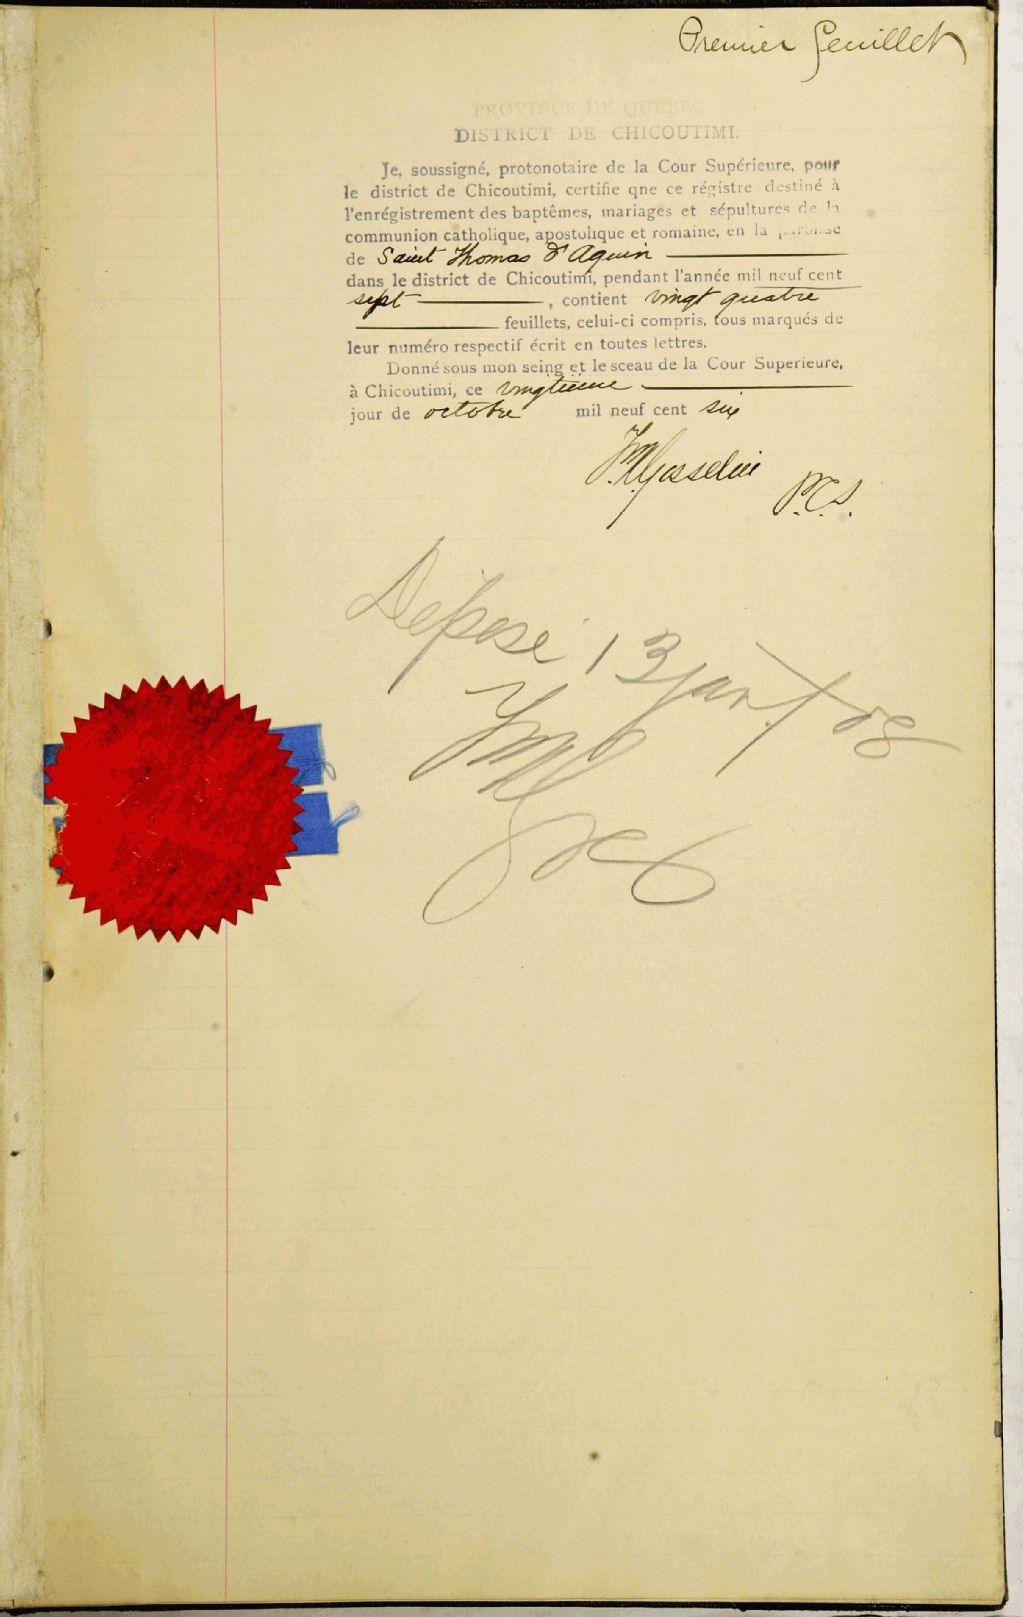 Premier feuillet
PROVINCE DE QUEBEC
DISTRICT DE CHICOUTIMI.
Je, soussigné, protonotaire de la Cour Supérieure, pour
le district de Chicoutimi, certifie qne ce régistre destiné à
l'enrégistrement des baptêmes, mariages et sépultures de la
communion catholique, apostolique et romaine, en la paroisse
de Saint Thomas d'Aquin
dans le district de Chicoutimi, pendant l'année mil neuf cent
sept, contient vingt quatre
feuillets, celui-ci compris, tous marqués de
leur numéro respectif écrit en toutes lettres.
Donné sous mon seing et le sceau de la Cour Superieure,
à Chicoutimi, ce vingtième
jour de octobre mil neuf cent six
Gosselin
P.C.S.
Déposé 13 jan. / 08